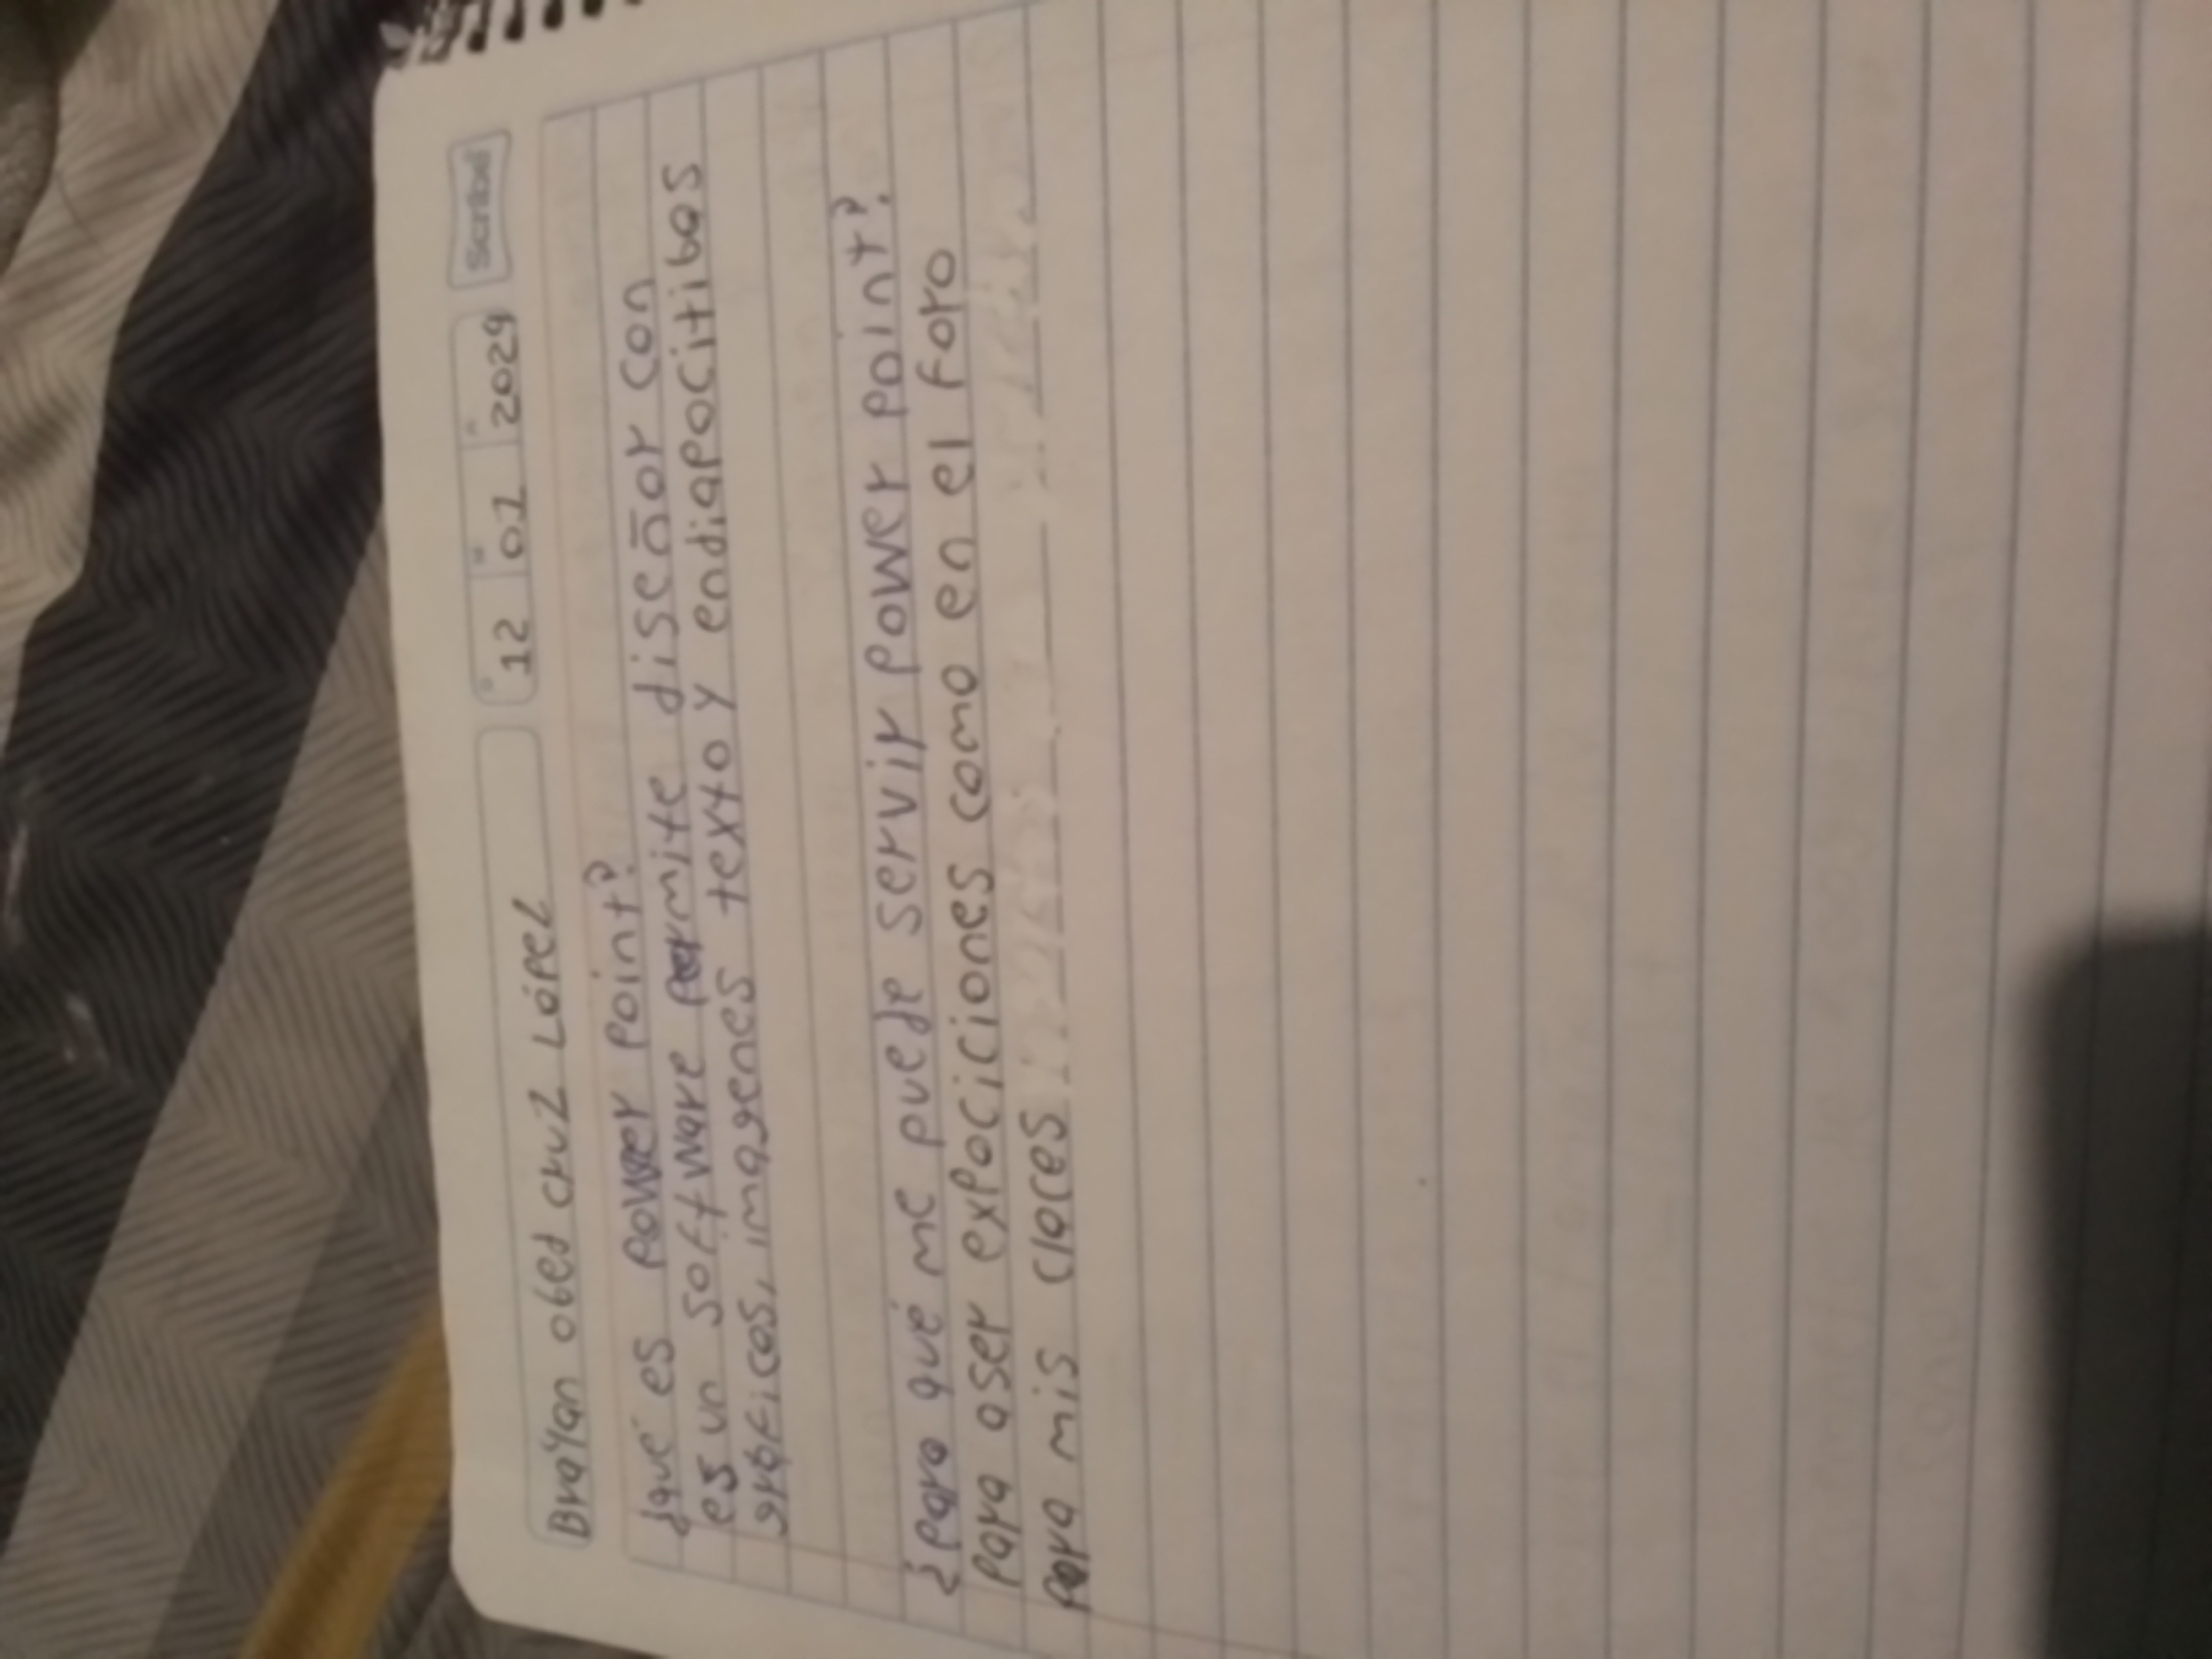 Brayan obed cruz López
12 01 2029
Scribe
¿que es power point?
es un software permite diseñar con
gráficos, imagenes texto y endiapocitibas
¿para qué me puede servir power point?
para aser expociciones como en el foro
para mis claces